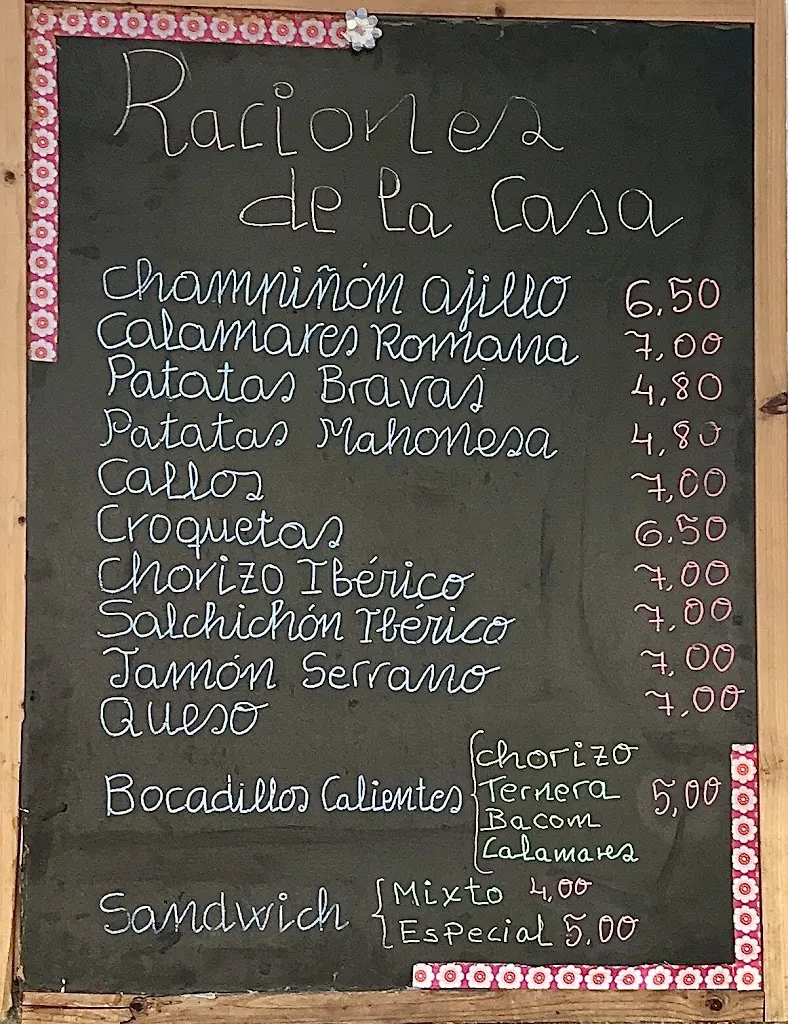 Raciones
de la Casa
Champiñón ajillo 6,50
Calamares Romana 7,00
Patatas Bravas 4,80
Patatas Mahonesa 4,80
Callos 7,00
Croquetas 6.50
Chorizo Ibérico 7,00
Salchichón Ibérico 7,00
Jamón Serrano 7,00
Queso 7,00
Bocadillos Calientes 5,00
Chorizo
Ternera
Bacom
Calamares
Sandwich
Mixto 4,00
Especial 5,00